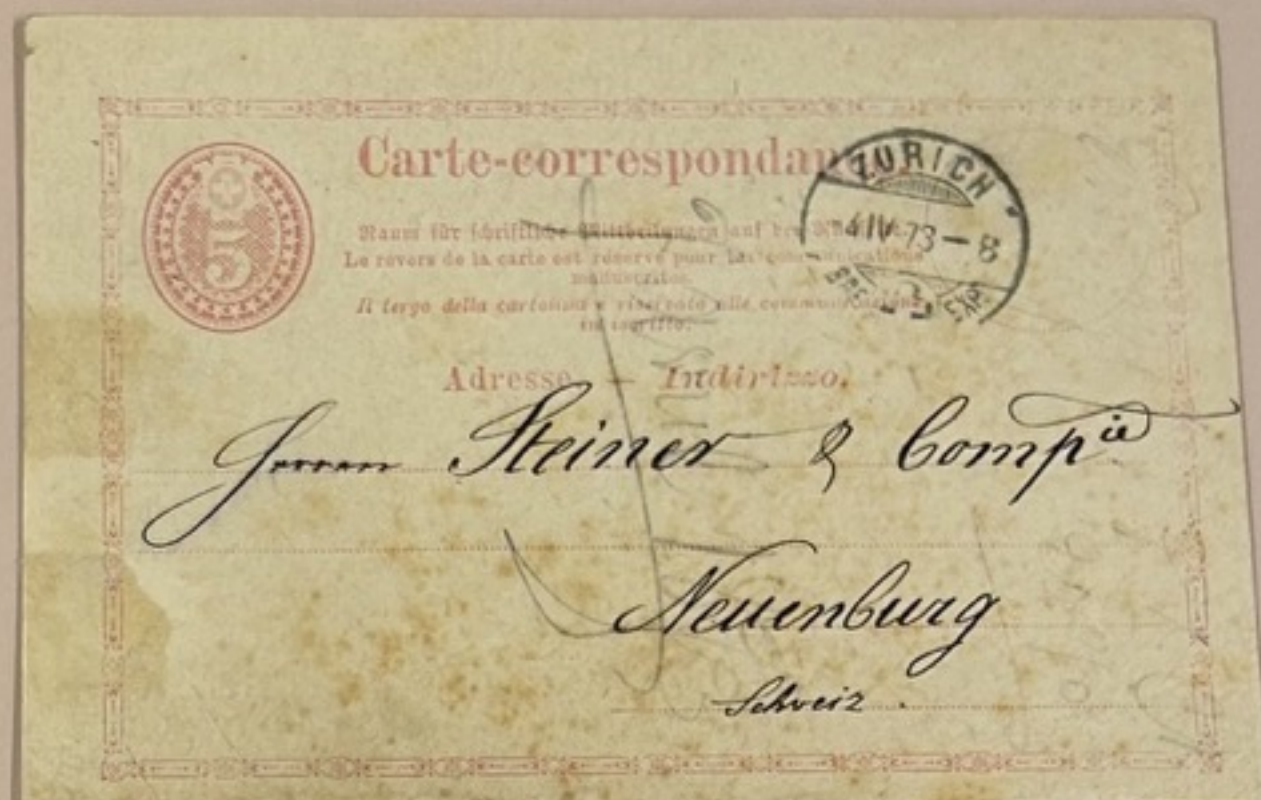 Carte-correspondan
ZÜRICH
5
4 IV 73-8
Raum für schriftliche Mittheilungen auf der
Le revers de la carte est réservé pour les communications
manuscrites.
Il tergo della cartolina e riservato alle comunicazioni
in iscritto.
EXP
Adresse. — Indirizzo.
Herren Steiner & Comp^ie
Neuenburg
Schweiz.